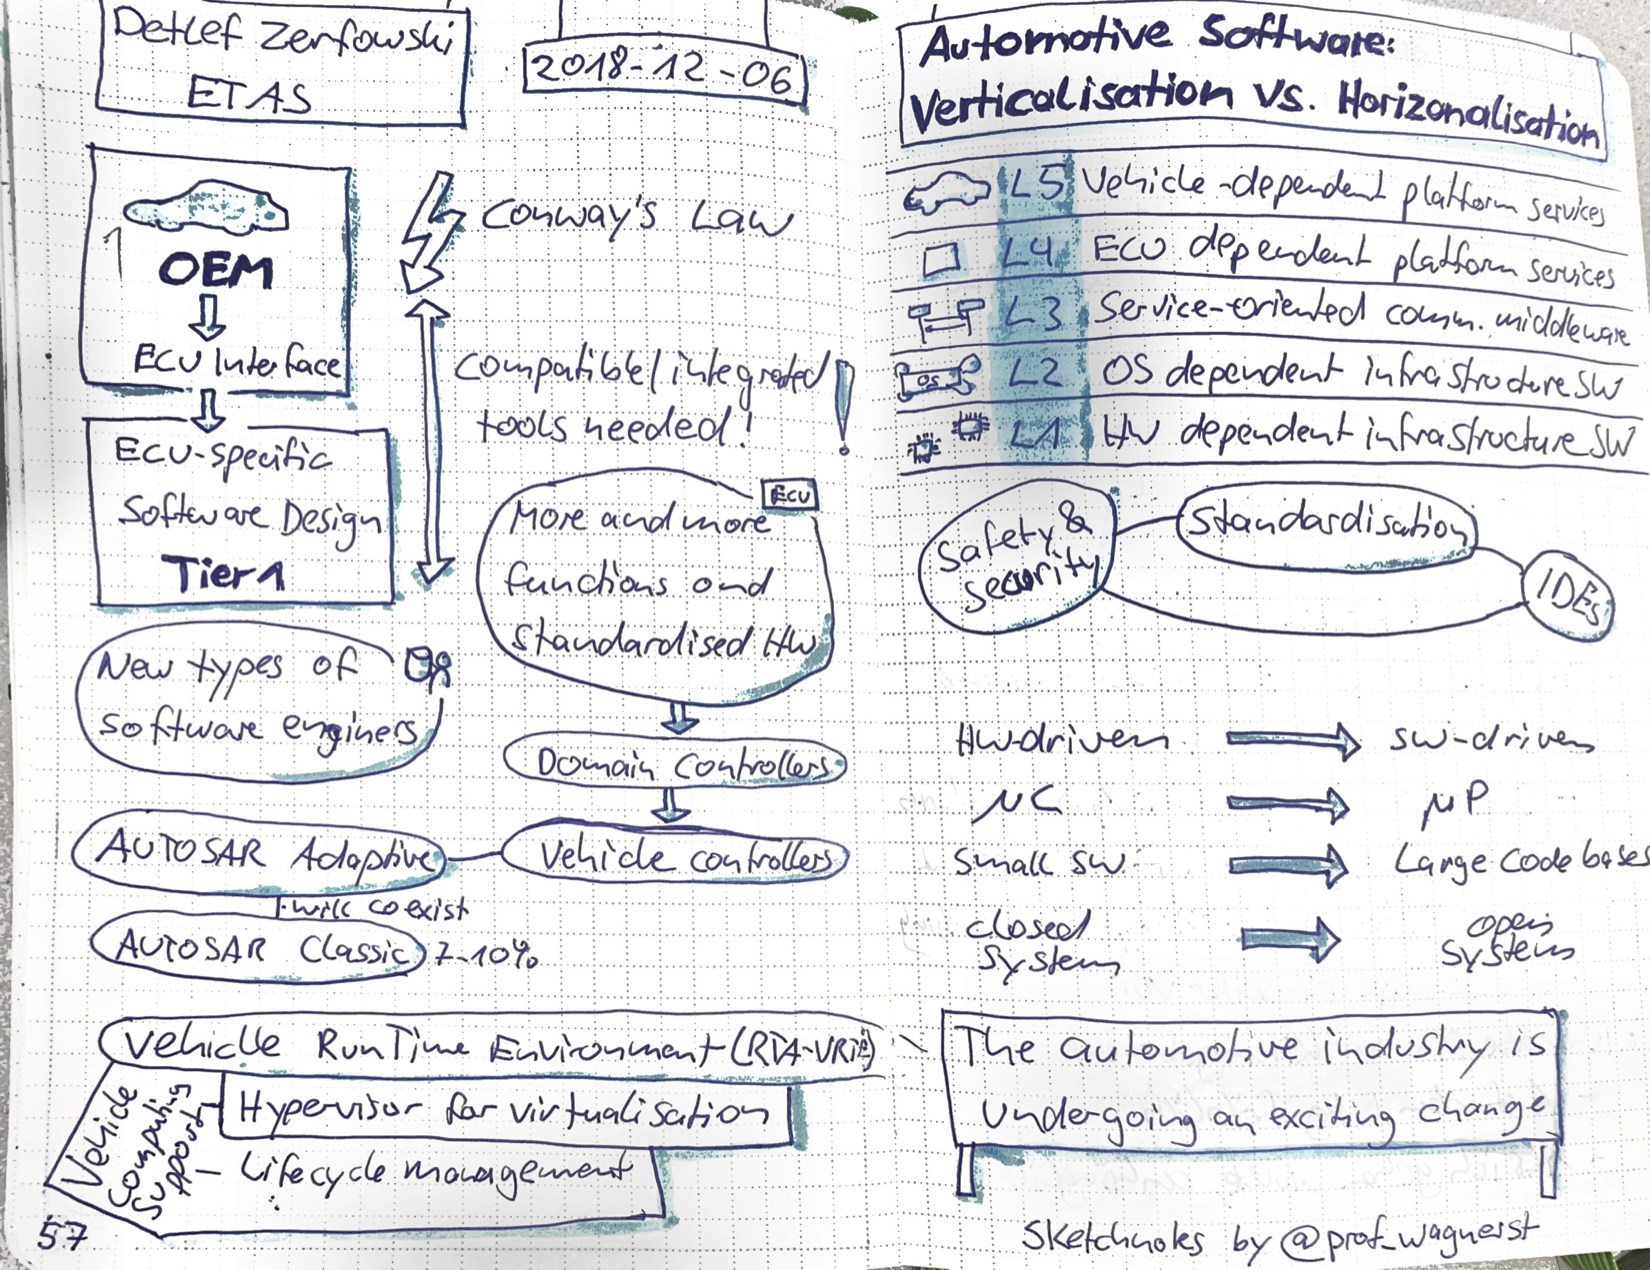 Detlef Zerfowski
ETAS
2018-12-06
OEM
ECU Interface
ECU-specific
Software Design
Tier 1
Conway's Law
Compatible/integrated
tools needed!
ECU
More and more
functions and
standardised HW
Domain Controllers
Vehicle controllers
New types of
software enginers
AUTOSAR Adaptive
will coexist
AUTOSAR Classic 7-10%
Vehicle RunTime Environment (RTA-VRTE)
Vehicle
Computing
Support
Hypervisor for virtualisation
- Lifecycle management
57
Automotive Software:
Verticalisation vs. Horizonalisation
L5 Vehicle-dependent platform services
L4 ECU dependent platform services
L3 Service-oriented comm. middleware
OS L2 OS dependent infrastructure SW
L1 HW dependent infrastructure SW
Safety &
security
Standardisation
IDEs
HW-driven
SW-driven
µC
µP
Small SW
Large Code bases
closed
System
open
Systems
The automotive industry is
undergoing an exciting change
Sketchnotes by @prof_wagnerst